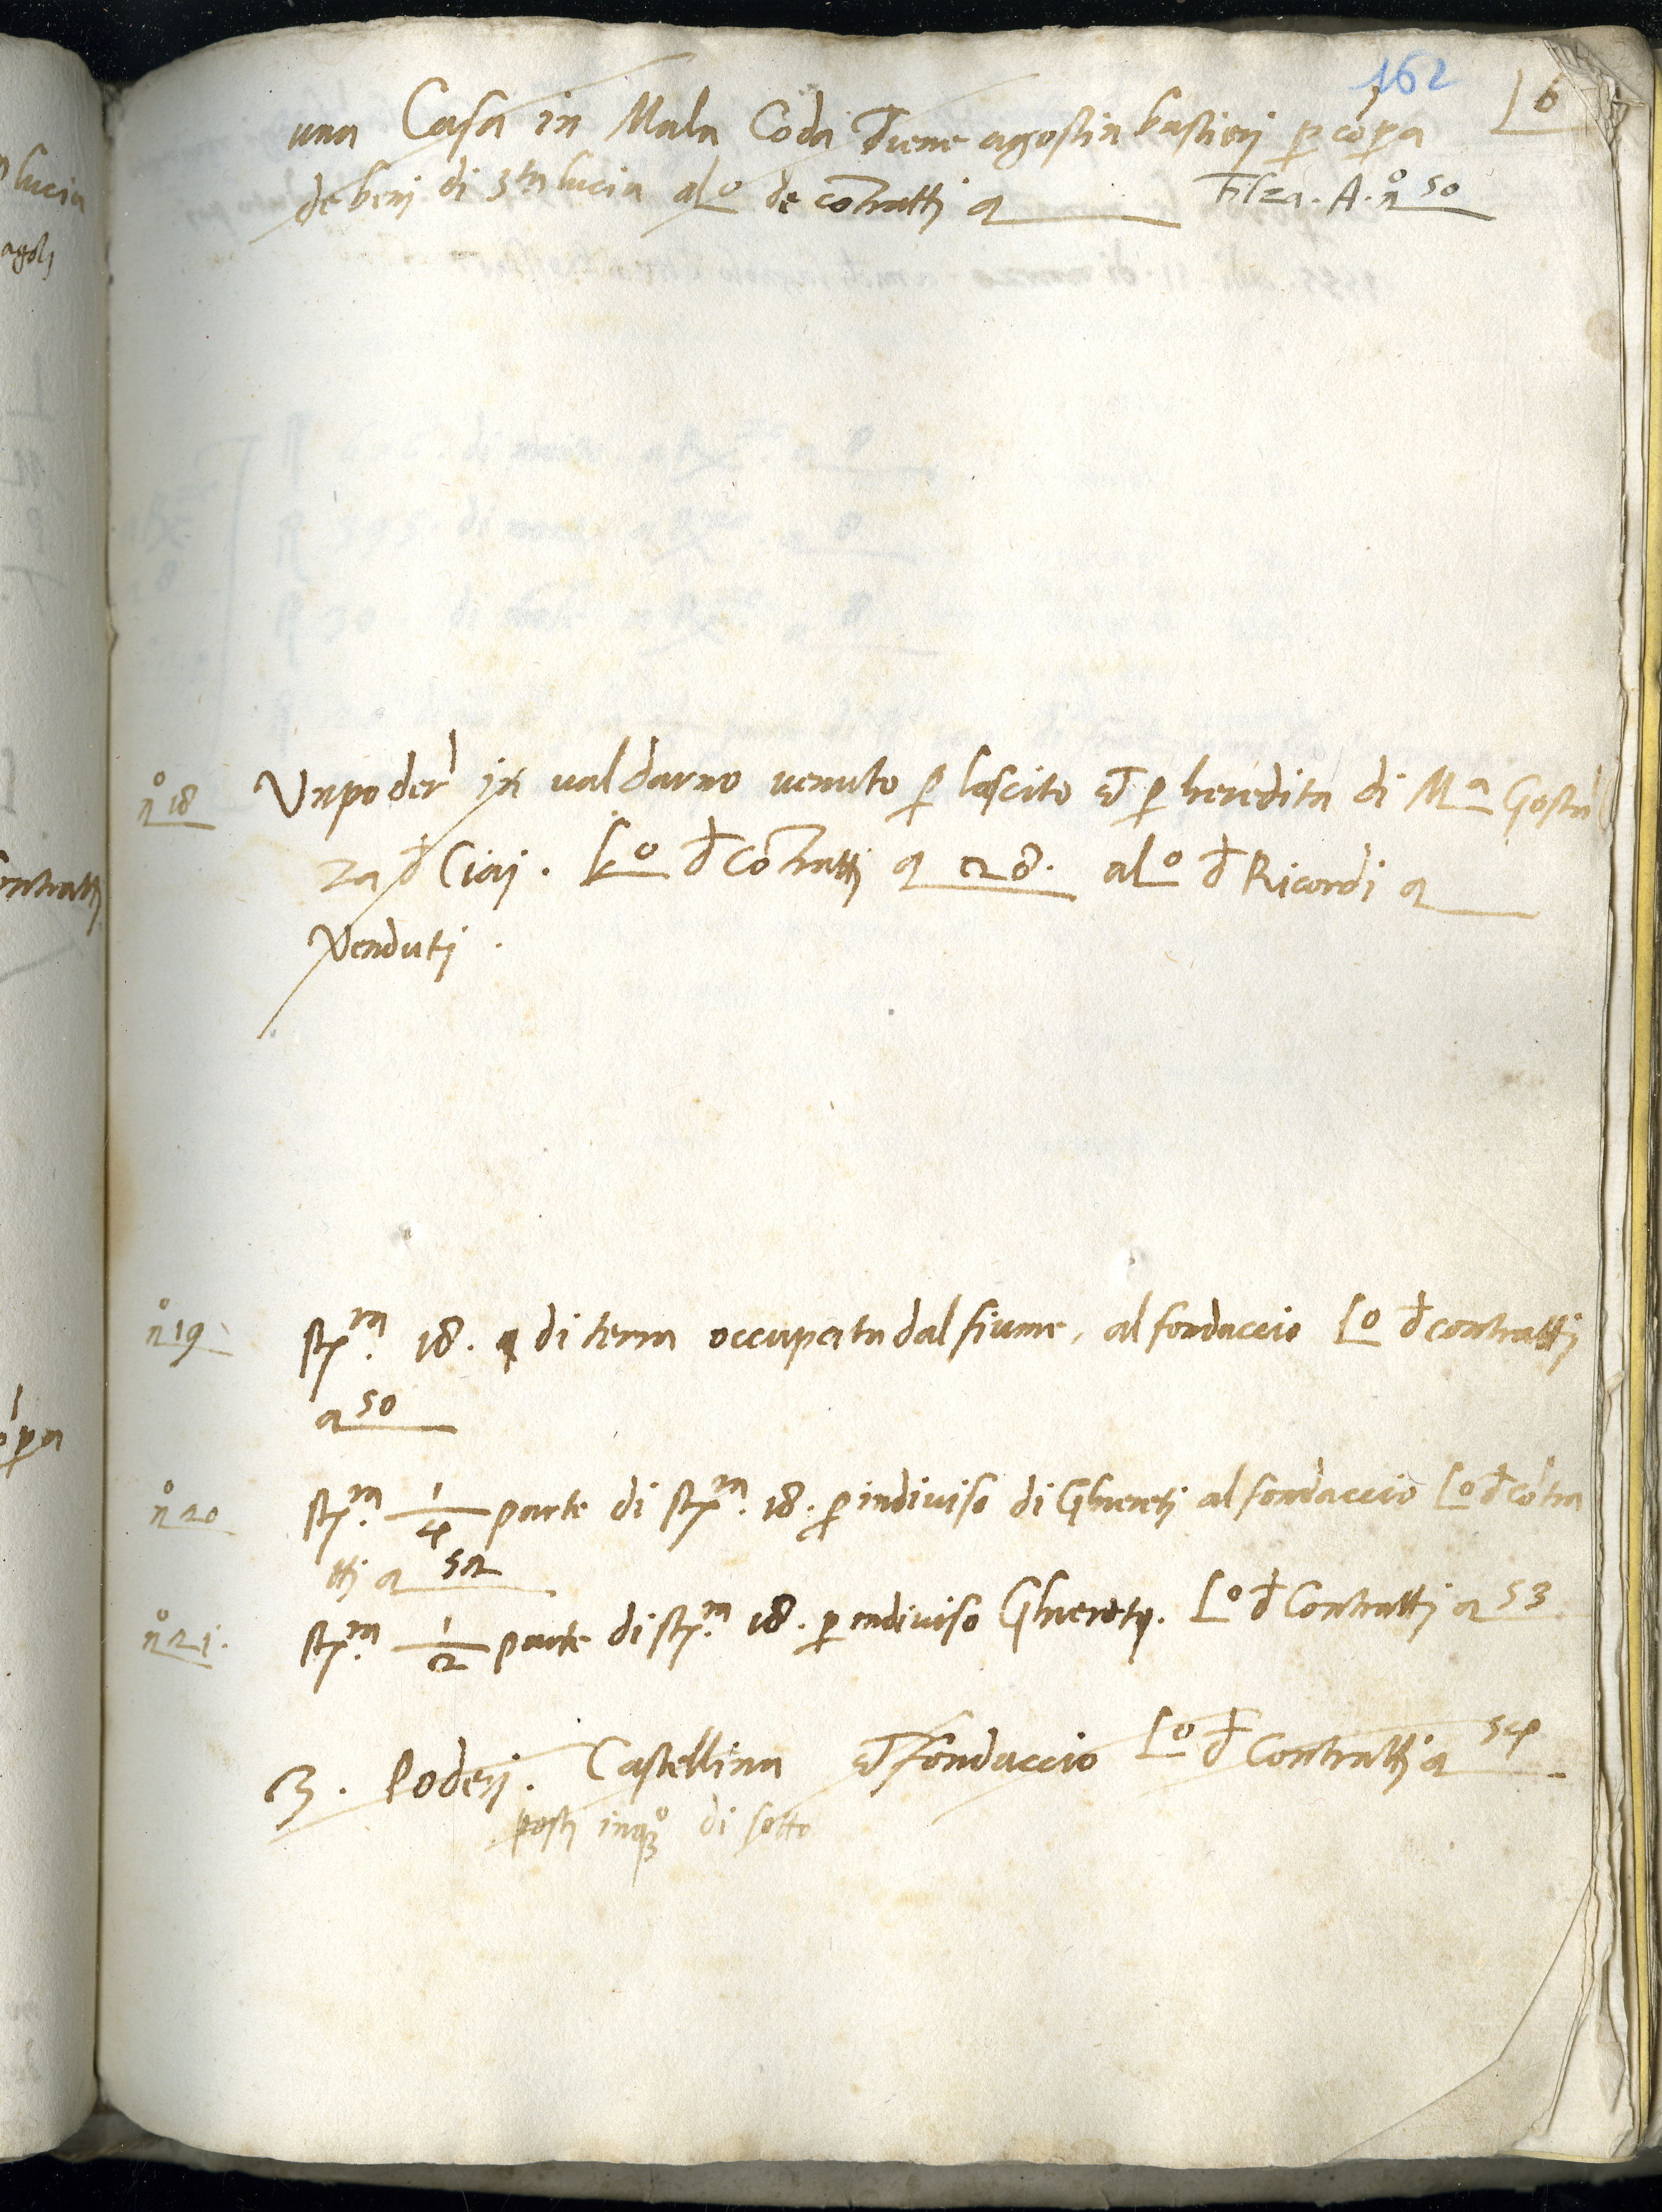 162
6
una Casa in Mala Coda Tiene agostin bastieri p cōpa
de beni di 3ta lucia al Lo de cōtratti a ___ Filza. A. nº 50
nº 18 Un poder in valdarno venuto p lascito et p heredita di Mª Gostā
za d Ciai. Lo d Cōtratti a 28. al Lo d Ricordi a
Venduti.
nº 19 stra 18. di terra occupata dal fiume, al fondaccio Lo d contratti
a 50
nº 20 stra 1/4 parte di stra. 18. p indiviso di Ghereti al fondaccio Lo d cōtra
tti a 52
nº 21. stra 1/2 parte di stra. 18. p indiviso Ghereto. Lo d Contratti a 53
3. Poderi. Castellina et fondaccio Lo d Contratti a 54
posti di sotto